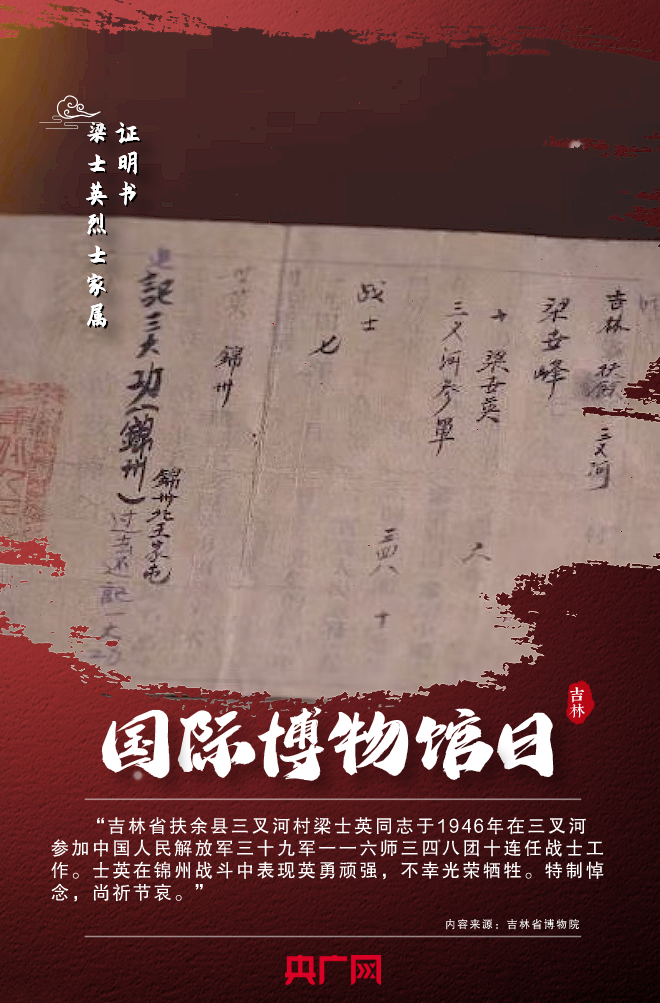 证明书
梁士英烈士家属
吉林 扶餘 三叉河
梁世峰
十 梁世英 六
三叉河参軍
战士 三四八 十
七
錦州
錦州北王家屯
記三大功(錦州)
过去还記一大功
国际博物馆日
吉林
“吉林省扶余县三叉河村梁士英同志于1946年在三叉河
参加中国人民解放军三十九军一一六师三四八团十连任战士工
作。士英在锦州战斗中表现英勇顽强，不幸光荣牺牲。特制悼
念，尚祈节哀。”
内容来源：吉林省博物院
央广网